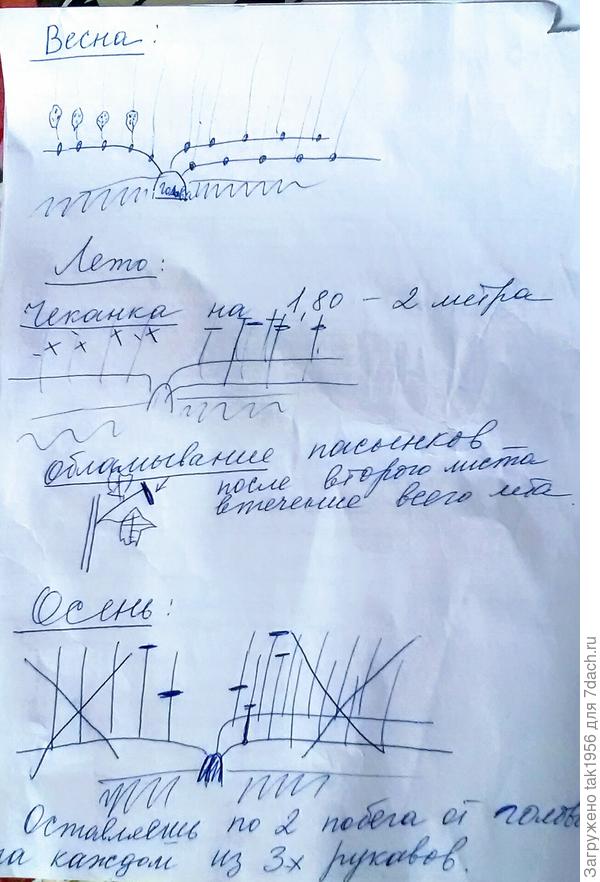 Весна:
голова
Лето:
Чеканка на 1,80 - 2 метра
Обламывание пасынков
после второго листа
втечение всего лета.
Осень:
Оставляешь по 2 побега от голов
на каждом из 3х рукавов.
Загружено tak1956 для 7dach.ru